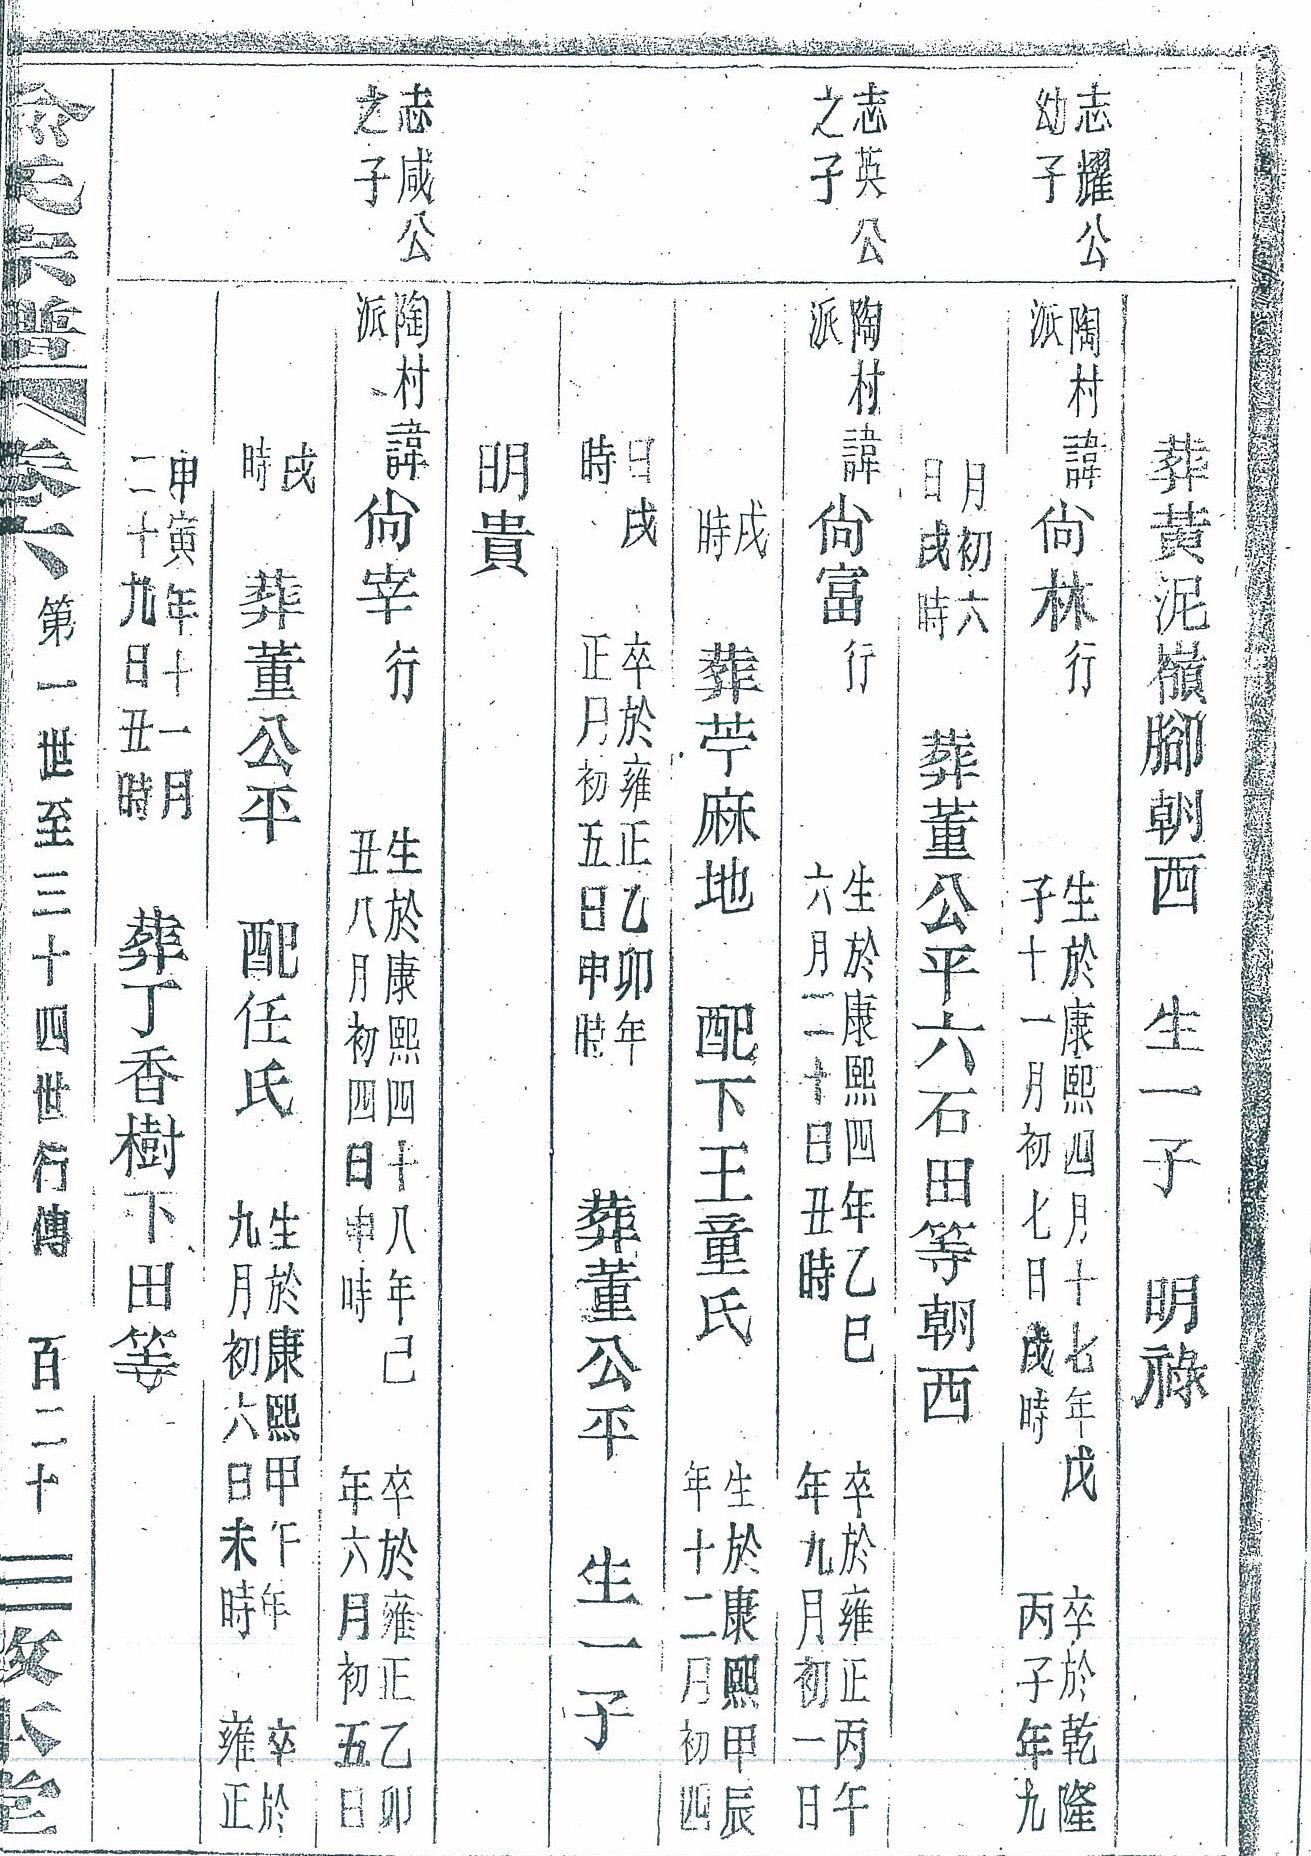 葬黃泥嶺腳朝西　生一子　明祿
志耀公
幼子
陶村諱尙林行
派
生於康熙四月十七年戊
子十一月初七日戌時
卒於乾隆
丙子年九
月初六
日戌時
葬董公平六石田等朝西
志英公
之子
陶村諱尙富行
派
生於康熙四年乙巳
六月二十日丑時
卒於雍正丙午
年九月初一日
戌
時
葬苧麻地　配下王童氏
生於康熙甲辰
年十二月初四
日戌
時
卒於雍正乙卯年
正月初五日申時
葬董公平　生一子
明貴
志咸公
之子
陶村諱尙宰行
派
生於康熙四十八年己
丑八月初四日申時
卒於雍正乙卯
年六月初五日
戌
時
葬董公平　配任氏
生於康熙甲午年
九月初六日未時
卒於
雍正
申寅年十一月
二十九日丑時
葬丁香樹下田等
氏宗譜 卷六 第一世至三十四世行傳 百二十三